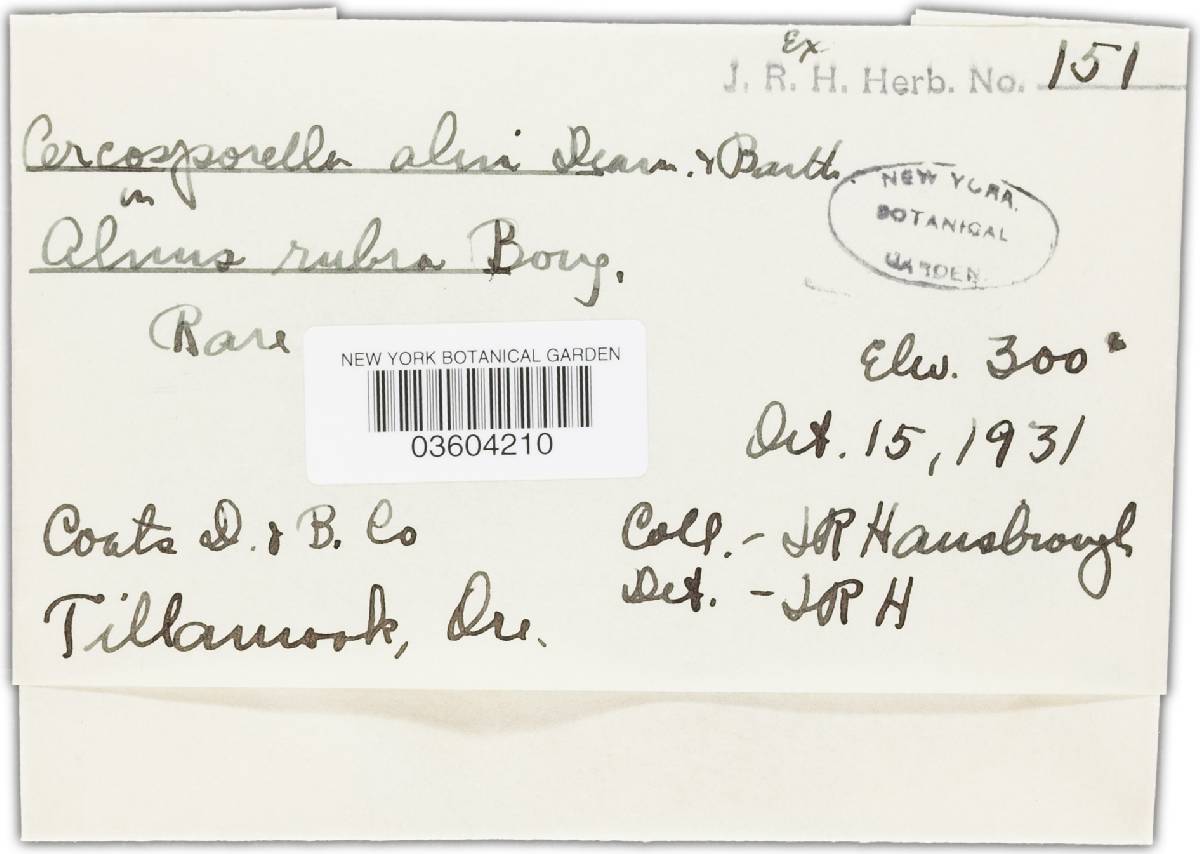 Ex
J. R. H. Herb. No. 151
Cercosporella alni Dearn. & Barth.
in
Alnus rubra Bong.
Rare
NEW YORK
BOTANICAL
GARDEN
NEW YORK BOTANICAL GARDEN
03604210
Elev. 300'
Oct. 15, 1931
Coats D. & B. Co
Tillamook, Ore.
Coll. - JR Hansbrough
Det. - JRH